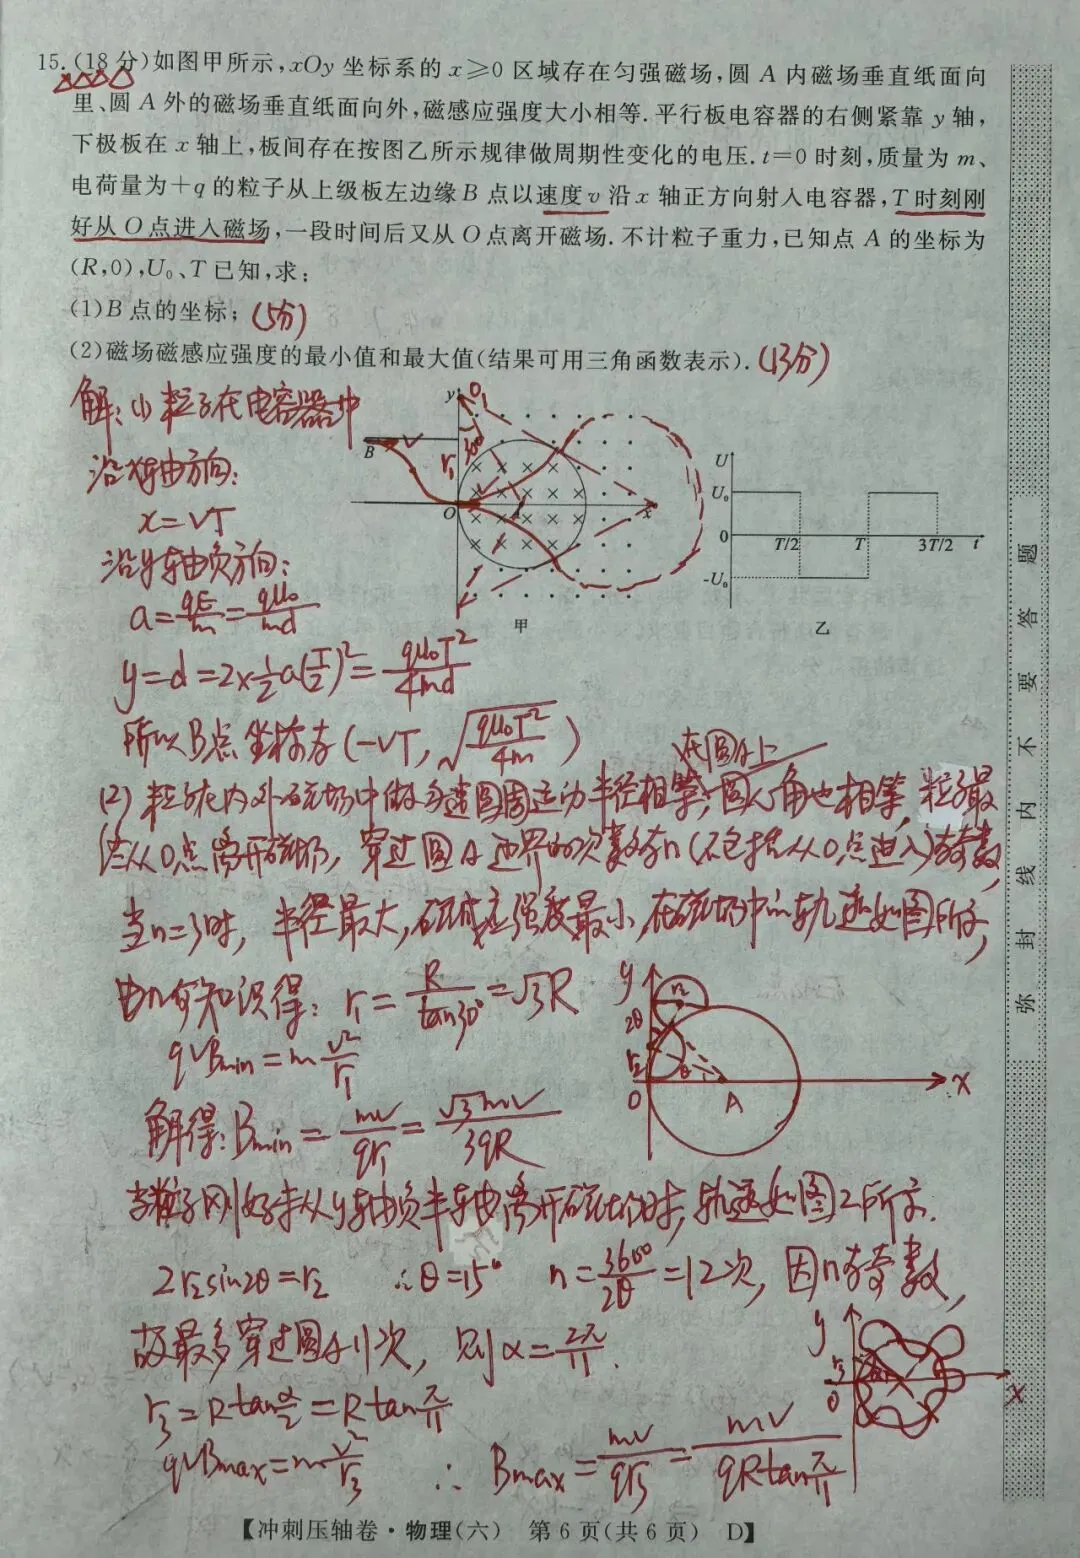 15.(18分)如图甲所示,xOy 坐标系的 x≥0 区域存在匀强磁场,圆 A 内磁场垂直纸面向
里、圆 A 外的磁场垂直纸面向外,磁感应强度大小相等.平行板电容器的右侧紧靠 y 轴,
下极板在 x 轴上,板间存在按图乙所示规律做周期性变化的电压.t=0 时刻,质量为 m、
电荷量为+q 的粒子从上级板左边缘 B 点以速度 v 沿 x 轴正方向射入电容器,T 时刻刚
好从 O 点进入磁场,一段时间后又从 O 点离开磁场.不计粒子重力,已知点 A 的坐标为
(R,0),U₀、T 已知,求:
(1)B 点的坐标; (5分)
(2)磁场磁感应强度的最小值和最大值(结果可用三角函数表示). (13分)
解:(1)粒子在电容器中
沿x轴方向:
x=vT
沿y轴负方向:
a=qE/m=qU₀/md
y=d=2×½a(T/2)²=qU₀T²/4md
所以B点坐标为(-vT, √(qU₀T²/4m))
y O₁ 60° r₁ B v O A x
甲
U U₀ 0 -U₀ T/2 T 3T/2 t
乙
在圆A上
(2)粒子在内外磁场中做匀速圆周运动半径相等,圆心角也相等,粒子最
后从O点离开磁场,穿过圆A边界的次数为n(不包括从O点进入)为奇数,
当n=3时,半径最大,磁感应强度最小,在磁场中的轨迹如图所示,
由几何知识得:r₁=R/tan30°=√3R
qvBmin=mv²/r₁
解得:Bmin=mv/qr₁=√3mv/3qR
y r₂ 2θ r₂ θ O A x
当粒子刚好未从y轴负半轴离开磁场时,轨迹如图2所示.
2r₂sin2θ=r₂ ∴θ=15° n=360°/2θ=12次,因n为奇数,
故最多穿过圆A11次,则α=2π/11.
r₃=Rtanα/2=Rtanπ/11
qvBmax=mv²/r₃ ∴Bmax=mv/qr₃=mv/qRtanπ/11
y r₃ O x
【冲刺压轴卷·物理(六) 第 6 页(共 6 页) D】
弥 封 线 内 不 要 答 题